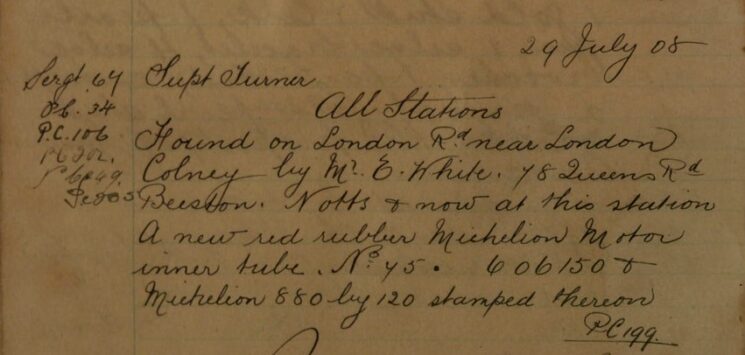 29 July 08
Sergt. 64 Supt Turner
P.C. 34
All Stations
P.C. 106
Found on London Rd near London
Colney by Mr. E. White. 78 Queens Rd
Beeston. Notts & now at this station
A new red rubber Michelion Motor
inner tube. No. 45. 606150 &
Michelion 880 by 120 stamped thereon
PC 199.